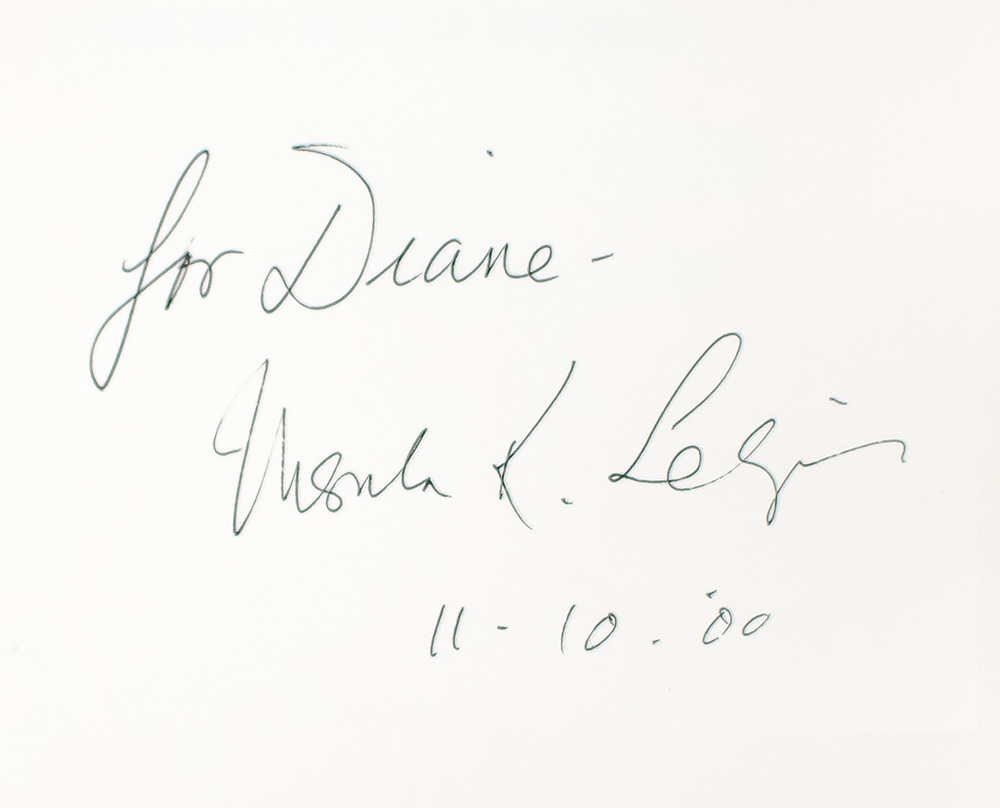 for Diane -
Ursula K. Le Guin
11 - 10 . '00